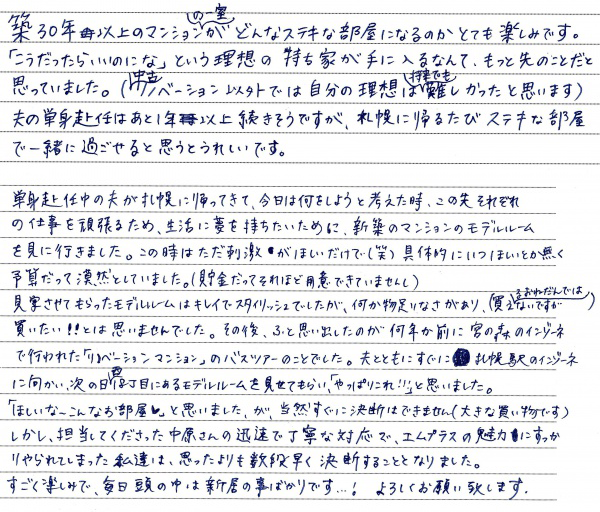 築30年以上のマンションの一室がどんなステキな部屋になるのかとても楽しみです。
「こうだったらいいのにな」という理想の持ち家が手に入るなんて、もっと先のことだと
思っていました。(中古リノベーション以外では自分の理想は持家でも難しかったと思います)
夫の単身赴任はあと1年以上続きそうですが、札幌に帰るたびステキな部屋
で一緒に過ごせると思うとうれしいです。
単身赴任中の夫が札幌に帰ってきて、今日は何をしようと考えた時、この先それぞれ
の仕事を頑張るため、生活に夢を持ちたいために、新築のマンションのモデルルーム
を見に行きました。この時はただ刺激がほしいだけで(笑)具体的にいつほしいとか無く
予算だって漠然としていました。(貯金だってそれほど用意できていませんし)
見学させてもらったモデルルームはキレイでスタイリッシュでしたが、何か物足りなさがあり、(そのおねだんでは買えないですが)
買いたい!!とは思いませんでした。その後、ふと思い出したのが何年か前に宮の森のインゾーネ
で行われた「リノベーションマンション」のバスツアーのことでした。夫とともにすぐに札幌駅のインゾーネ
に向かい、次の日18丁目にあるモデルルームを見せてもらい、「やっぱりこれ!!」と思いました。
「ほしいな〜こんなお部屋♥」と思いました、が、当然すぐに決断はできません(大きな買い物です)
しかし、担当してくださった中原さんの迅速で丁寧な対応で、エムプラスの魅力にすっか
りやられてしまった私達は、思ったよりも数段早く決断することとなりました。
すごく楽しみで、毎日頭の中は新居の事ばかりです…! よろしくお願い致します.